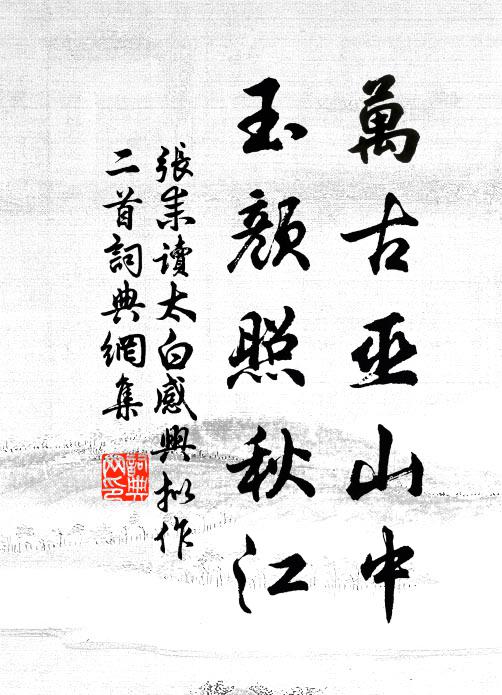 萬古巫山中
玉顏照秋江
張耒讀太白感興擬作
二首詞典網集
詞典
网印